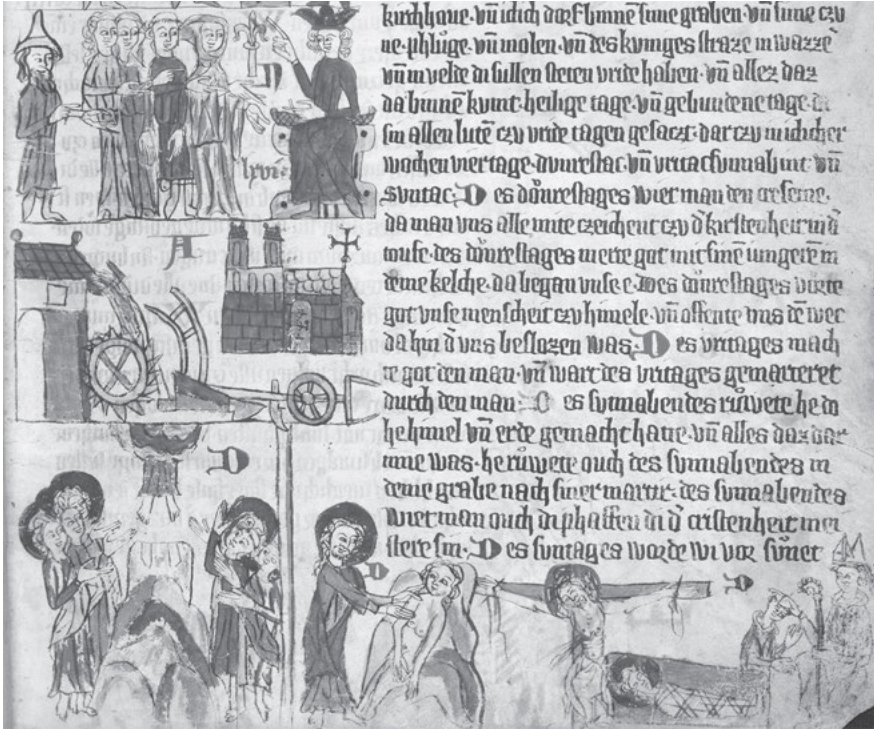 kirchhaue · vn̄ idich dorf bīnnē sıme graben · vn̄ sıme czu
ne · phluge · vn̄ molen · vn̄ des kuniges straze in wazze͞
vn̄ in velde di sullen steten vride haben · vn̄ allez daz
da binnē kumt · heilige tage · vn̄ gebundene tage · di
sin allen lutē czu vride tagen gesaczt · dar czu in idicher
wochen vier tage · dunrestac · vn̄ vritac sunnabint · vn̄
suntac · D es dōnrestages wiet man den creseme ·
da man uns alle mite czeichent czu d̄ kirstenheit in d̄
toufe · des dōnrestages merte got mit sinē iungerē in
deme kelche · da began unse e · D es dōnrestages vurte
got unse menscheit czu himele · vn̄ offente uns dē wec
da hin d̄ uns beslozen was · D es vritages mach
te got den man · vn̄ wart des vritages gemarteret
durch den man · D es sunnabendes ruwete he do
he himel vn̄ erde gemacht hatte · vn̄ alles daz dar
inne was · he ruwete ouch des sunnabendes in
deme grabe nach siner martir · des sunnabendes
wiet man ouch di phaffen di d̄ cristenheit mei
stere sin · D es suntages worde wi vor sunet
D
D
D